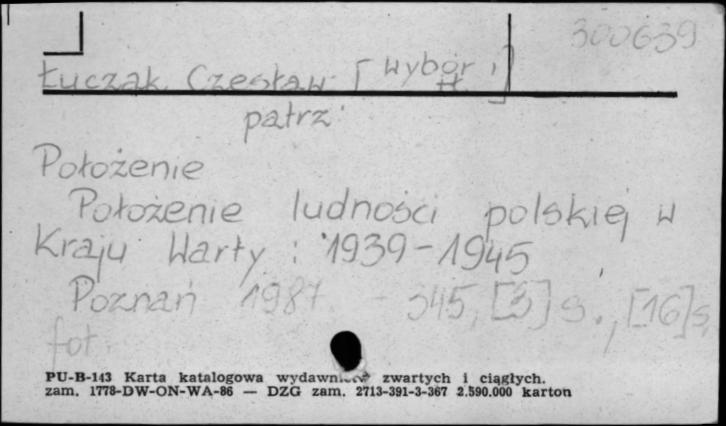 300639
Łuczak Czesław [wybór i tł.]
patrz:
Położenie
Położenie ludności polskiej w
Kraju Warty : 1939-1945
Poznań 1987. - 345, [3] s., [16] s.
fot.
PU-B-143 Karta katalogowa wydawnictw zwartych i ciągłych.
zam. 1778-DW-ON-WA-86 — DZG zam. 2713-391-3-367 2.590.000 karton